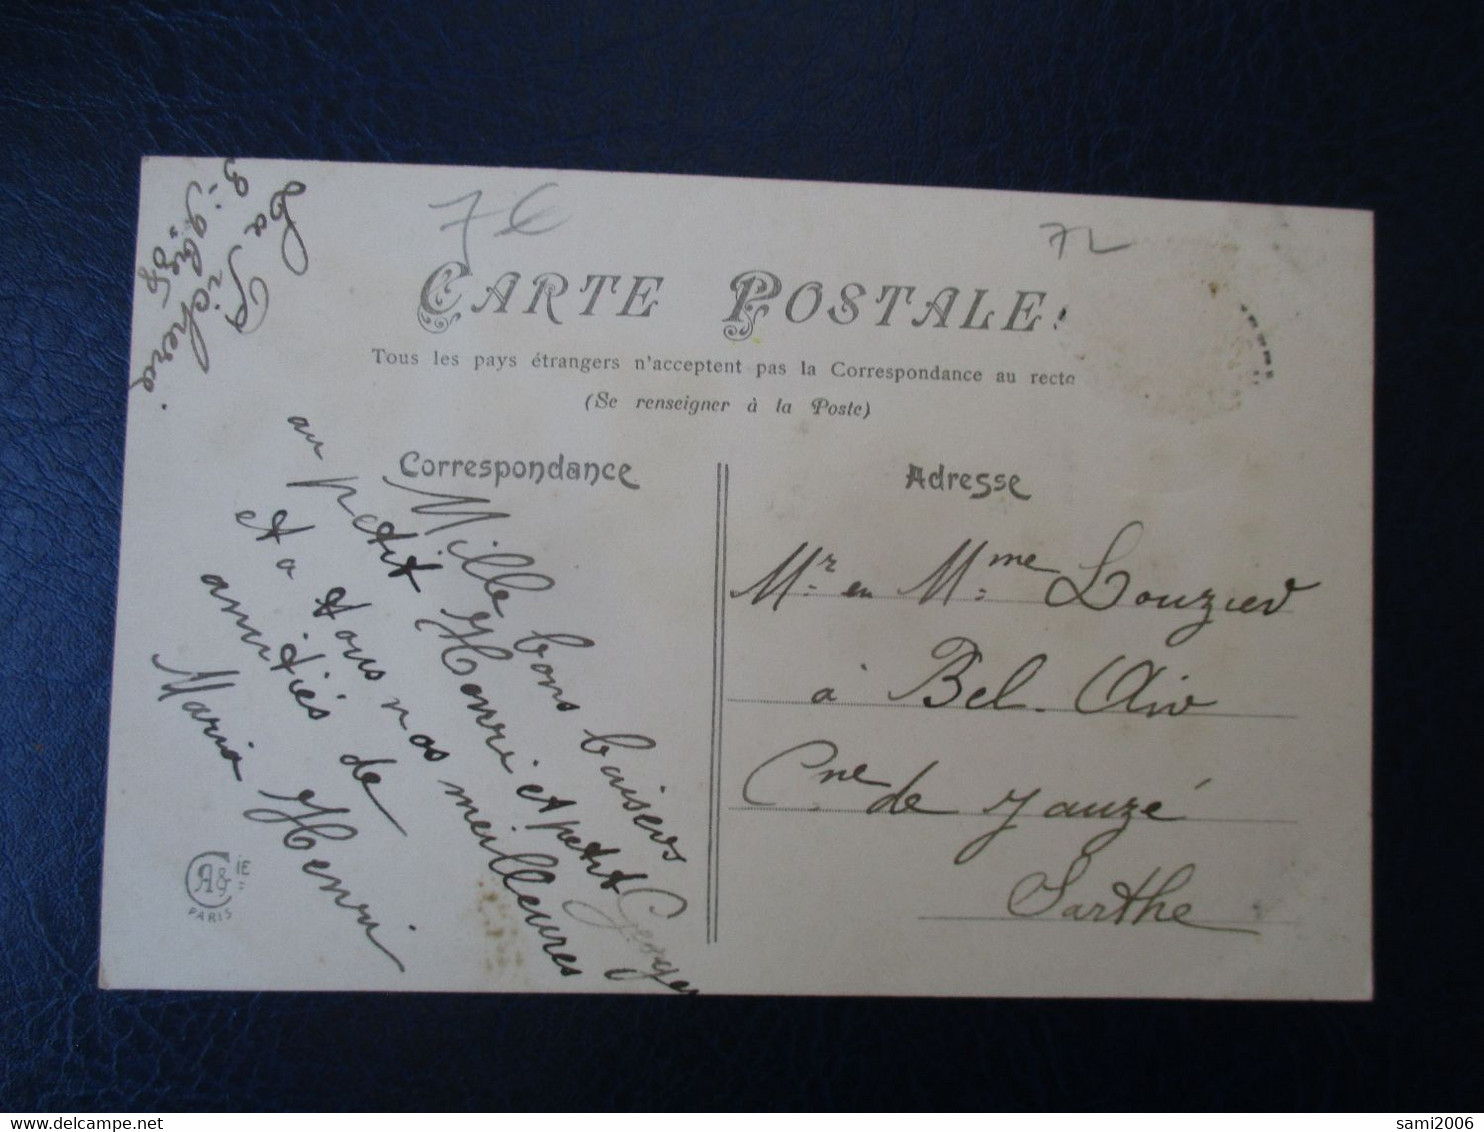 76
72
La Richerie
3-9bre 08
CARTE POSTALE
Tous les pays étrangers n'acceptent pas la Correspondance au recto
(Se renseigner à la Poste)
Correspondance
Mille bons baisers
au petit Henri et petit Georges
et a vous nos meilleures
amitiés de
Maria Henri
A & CIE
PARIS
Adresse
Mr. en Mme Louzier
à Bel. Air
Cne de Yauzé
Sarthe
sami2006